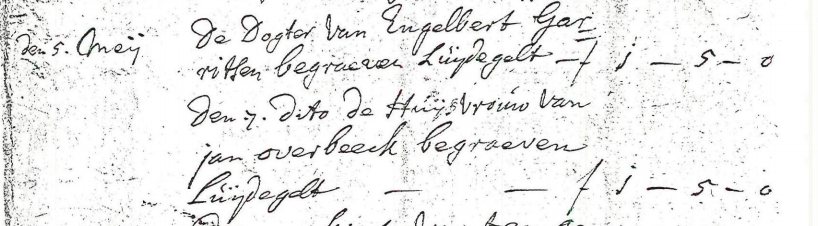 den 5. Meij De Dogter Van Engelbert Gar=
ritsen begraeven Lüijdegelt — f j — 5 — 0
den 7. dito de Huijsvrouw Van
jan overbeeck begraeven
Lüijdegelt — — f j — 5 — 0